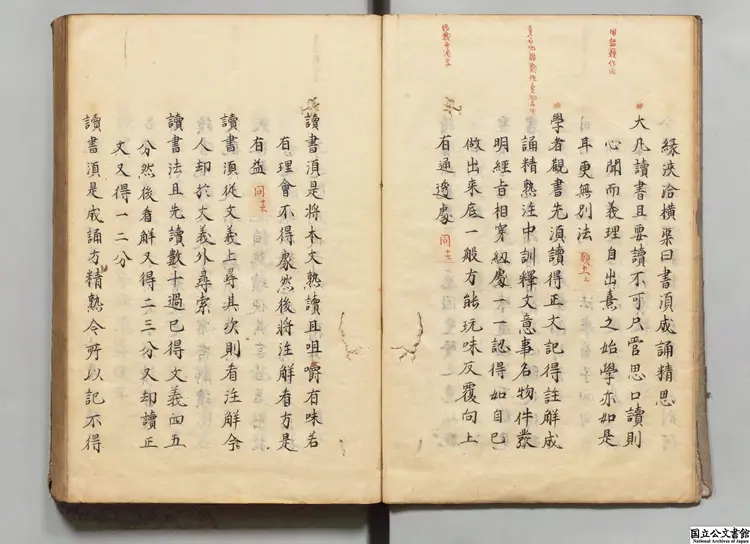 緣浹洽橫渠曰書湏成誦精思
大凡讀書且要讀不可只管思口讀則
心閒而義理自出熹之始學亦如是
耳更無別法
學者觀書先湏讀得正文記得註解成
誦精熟注中訓釋文意事名物件發
明經旨相穿紐處一一認得如自己
做出來底一般方能玩味反覆向上
有通透處 同十一
讀書湏是將本文熟讀且咀嚼有味若
有理會不得處然後將注解看方是
有益 同十六
讀書湏從文義上尋其次則看注解今
人却於文義外尋索
讀書法且先讀數十過已得文義四五
分然後看解又得二三分又却讀正
文又得一二分
讀書湏是成誦方精熟今所以記不得
国立公文書館
National Archives of Japan